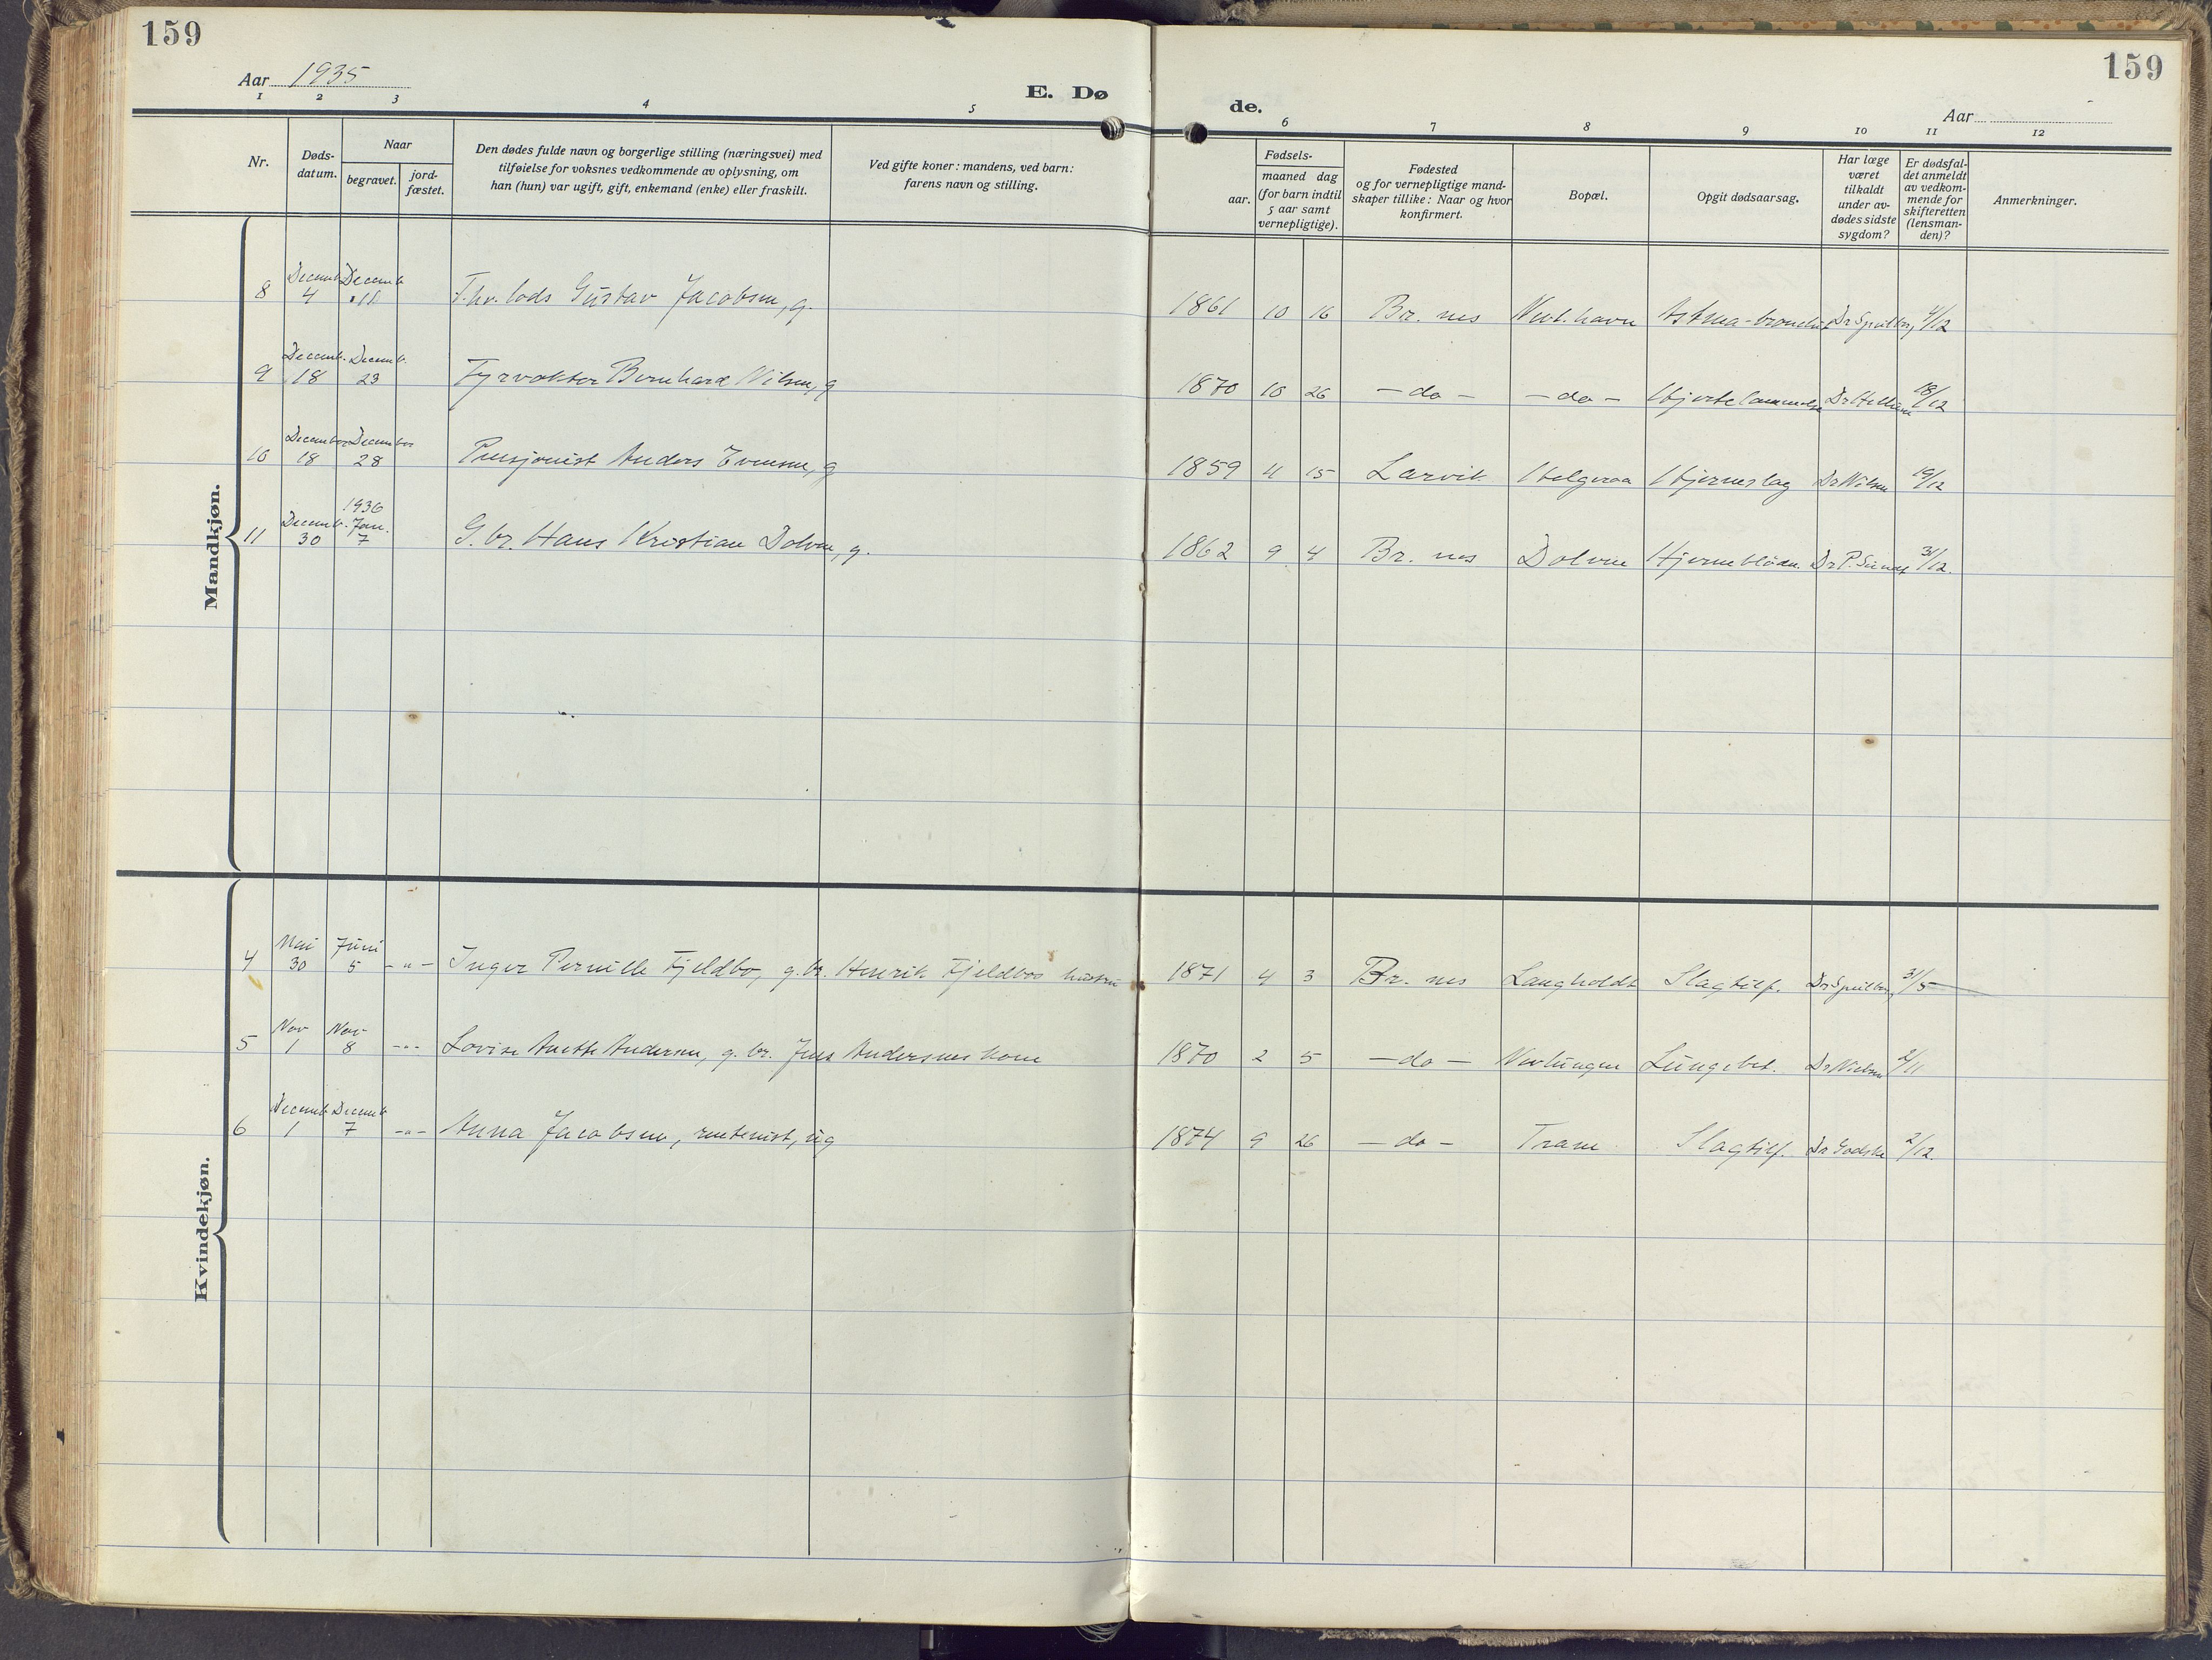 159
159
Aar 1935
E. Dø
de.
Aar
1 2 3 4 5 6 7 8 9 10 11 12
Nr.
Døds-
datum.
Naar
begravet.
jord-
fæstet.
Den dødes fulde navn og borgerlige stilling (næringsvei) med
tilføielse for voksnes vedkommende av oplysning, om
han (hun) var ugift, gift, enkemand (enke) eller fraskilt.
Ved gifte koner: mandens, ved barn:
farens navn og stilling.
Fødsels-
aar.
maaned dag
(for barn indtil
5 aar samt
vernepligtige).
Fødested
og for vernepligtige mand-
skaper tillike: Naar og hvor
konfirmert.
Bopæl.
Opgit dødsaarsag.
Har læge
været
tilkaldt
under av-
dødes sidste
sygdom?
Er dødsfal-
det anmeldt
av vedkom-
mende for
skifteretten
(lensman-
den)?
Anmerkninger.
Mandkjøn.
Decemb. Decemb.
8 4 F.hv. lods Gustav Jacobsen, g. 1861 10 16 Br. nes Nevl.havn Astma-bronchit 4/12
Decemb. Decemb.
9 18 23 Fyrvokter Bernhard Nilsen, g 1870 10 26 - do - - do - Hjertelammelse 18/12
December December
10 18 28 Pensjonist Anders Evensen, g 1859 4 15 Larvik Helgeroa Hjerneslag Dr Nilsen 19/12
1936
Decemb. Jan.
11 30 7 G.br. Hans Kristian Dolven, g. 1862 9 4 Br. nes Dolven Hjerneblødn. 31/12.
Kvindekjøn.
Mai Juni
4 30 5 - " - Inger Pernille Fjeldbo, g.br. Henrik Fjeldbos hustru 1871 4 3 Br. nes Langholdt Slagtilf. 31/5
Nov Nov
5 1 8 - " - Lovise Anette Andersen, g.br. Jens Andersens kone 1870 2 5 - do - Nevlungen Lungebet. Dr Nielsen 2/11
Decemb Decemb
6 1 7 - " - Anna Jacobsen, rentenist, ug 1874 9 26 - do - Tram Slagtilf. Dr Godske 2/12.